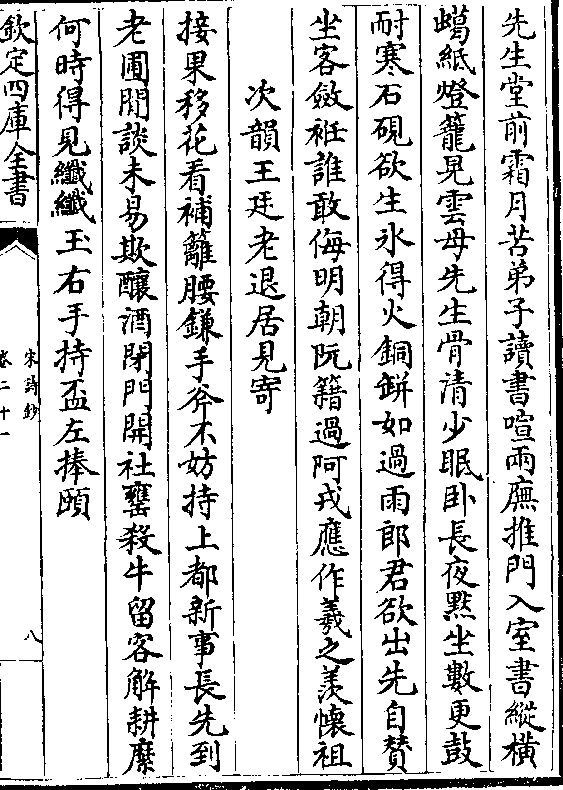 先生堂前霜月苦弟子讀書喧兩廡推門入室書縱橫
蠟紙燈籠晃雲母先生骨清少眠卧長夜黙坐數更鼓
耐寒石硯欲生氷得火銅缾如過雨郎君欲出先自賛
坐客斂袵誰敢侮明朝阮籍過阿戎應作羲之羨懐祖
次韻王廷老退居見寄
接果移花看補籬腰鎌手斧不妨持上都新事長先到
老圃閒談未易欺釀酒閉門開社甕殺牛留客解耕縻
何時得見纎纎玉右手持盃左捧頤
欽定四庫全書
宋詩鈔
卷二十一
八